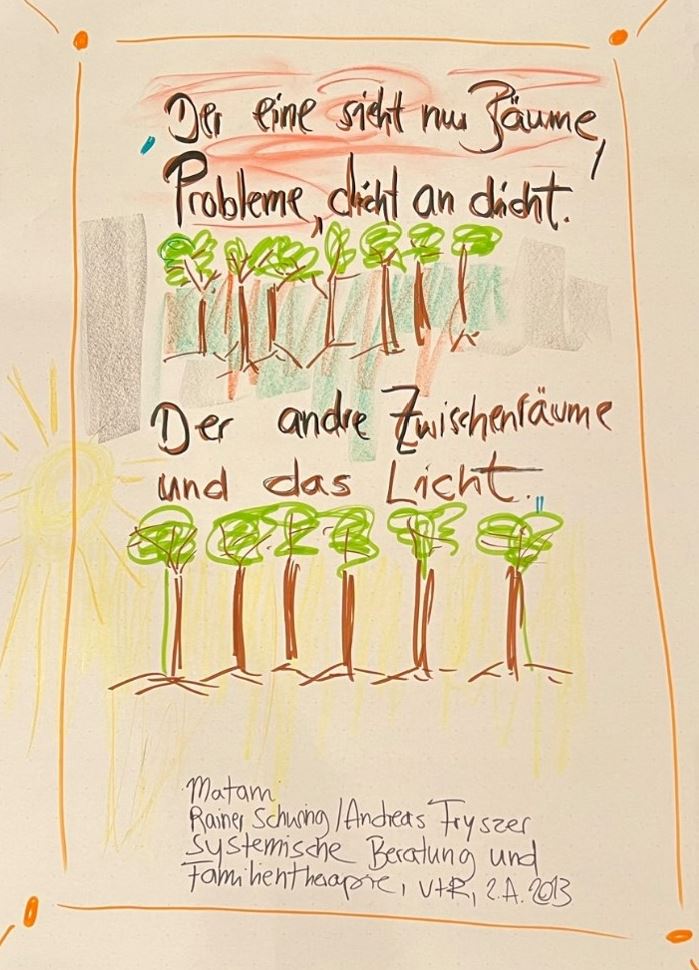 "Der eine sieht nur Bäume,
Probleme, dicht an dicht.
Der andre Zwischenräume
und das Licht."
Matam
Rainer Schwing / Andreas Fryszer
Systemische Beratung und
Familientherapie, V+R, 2.A. 2013